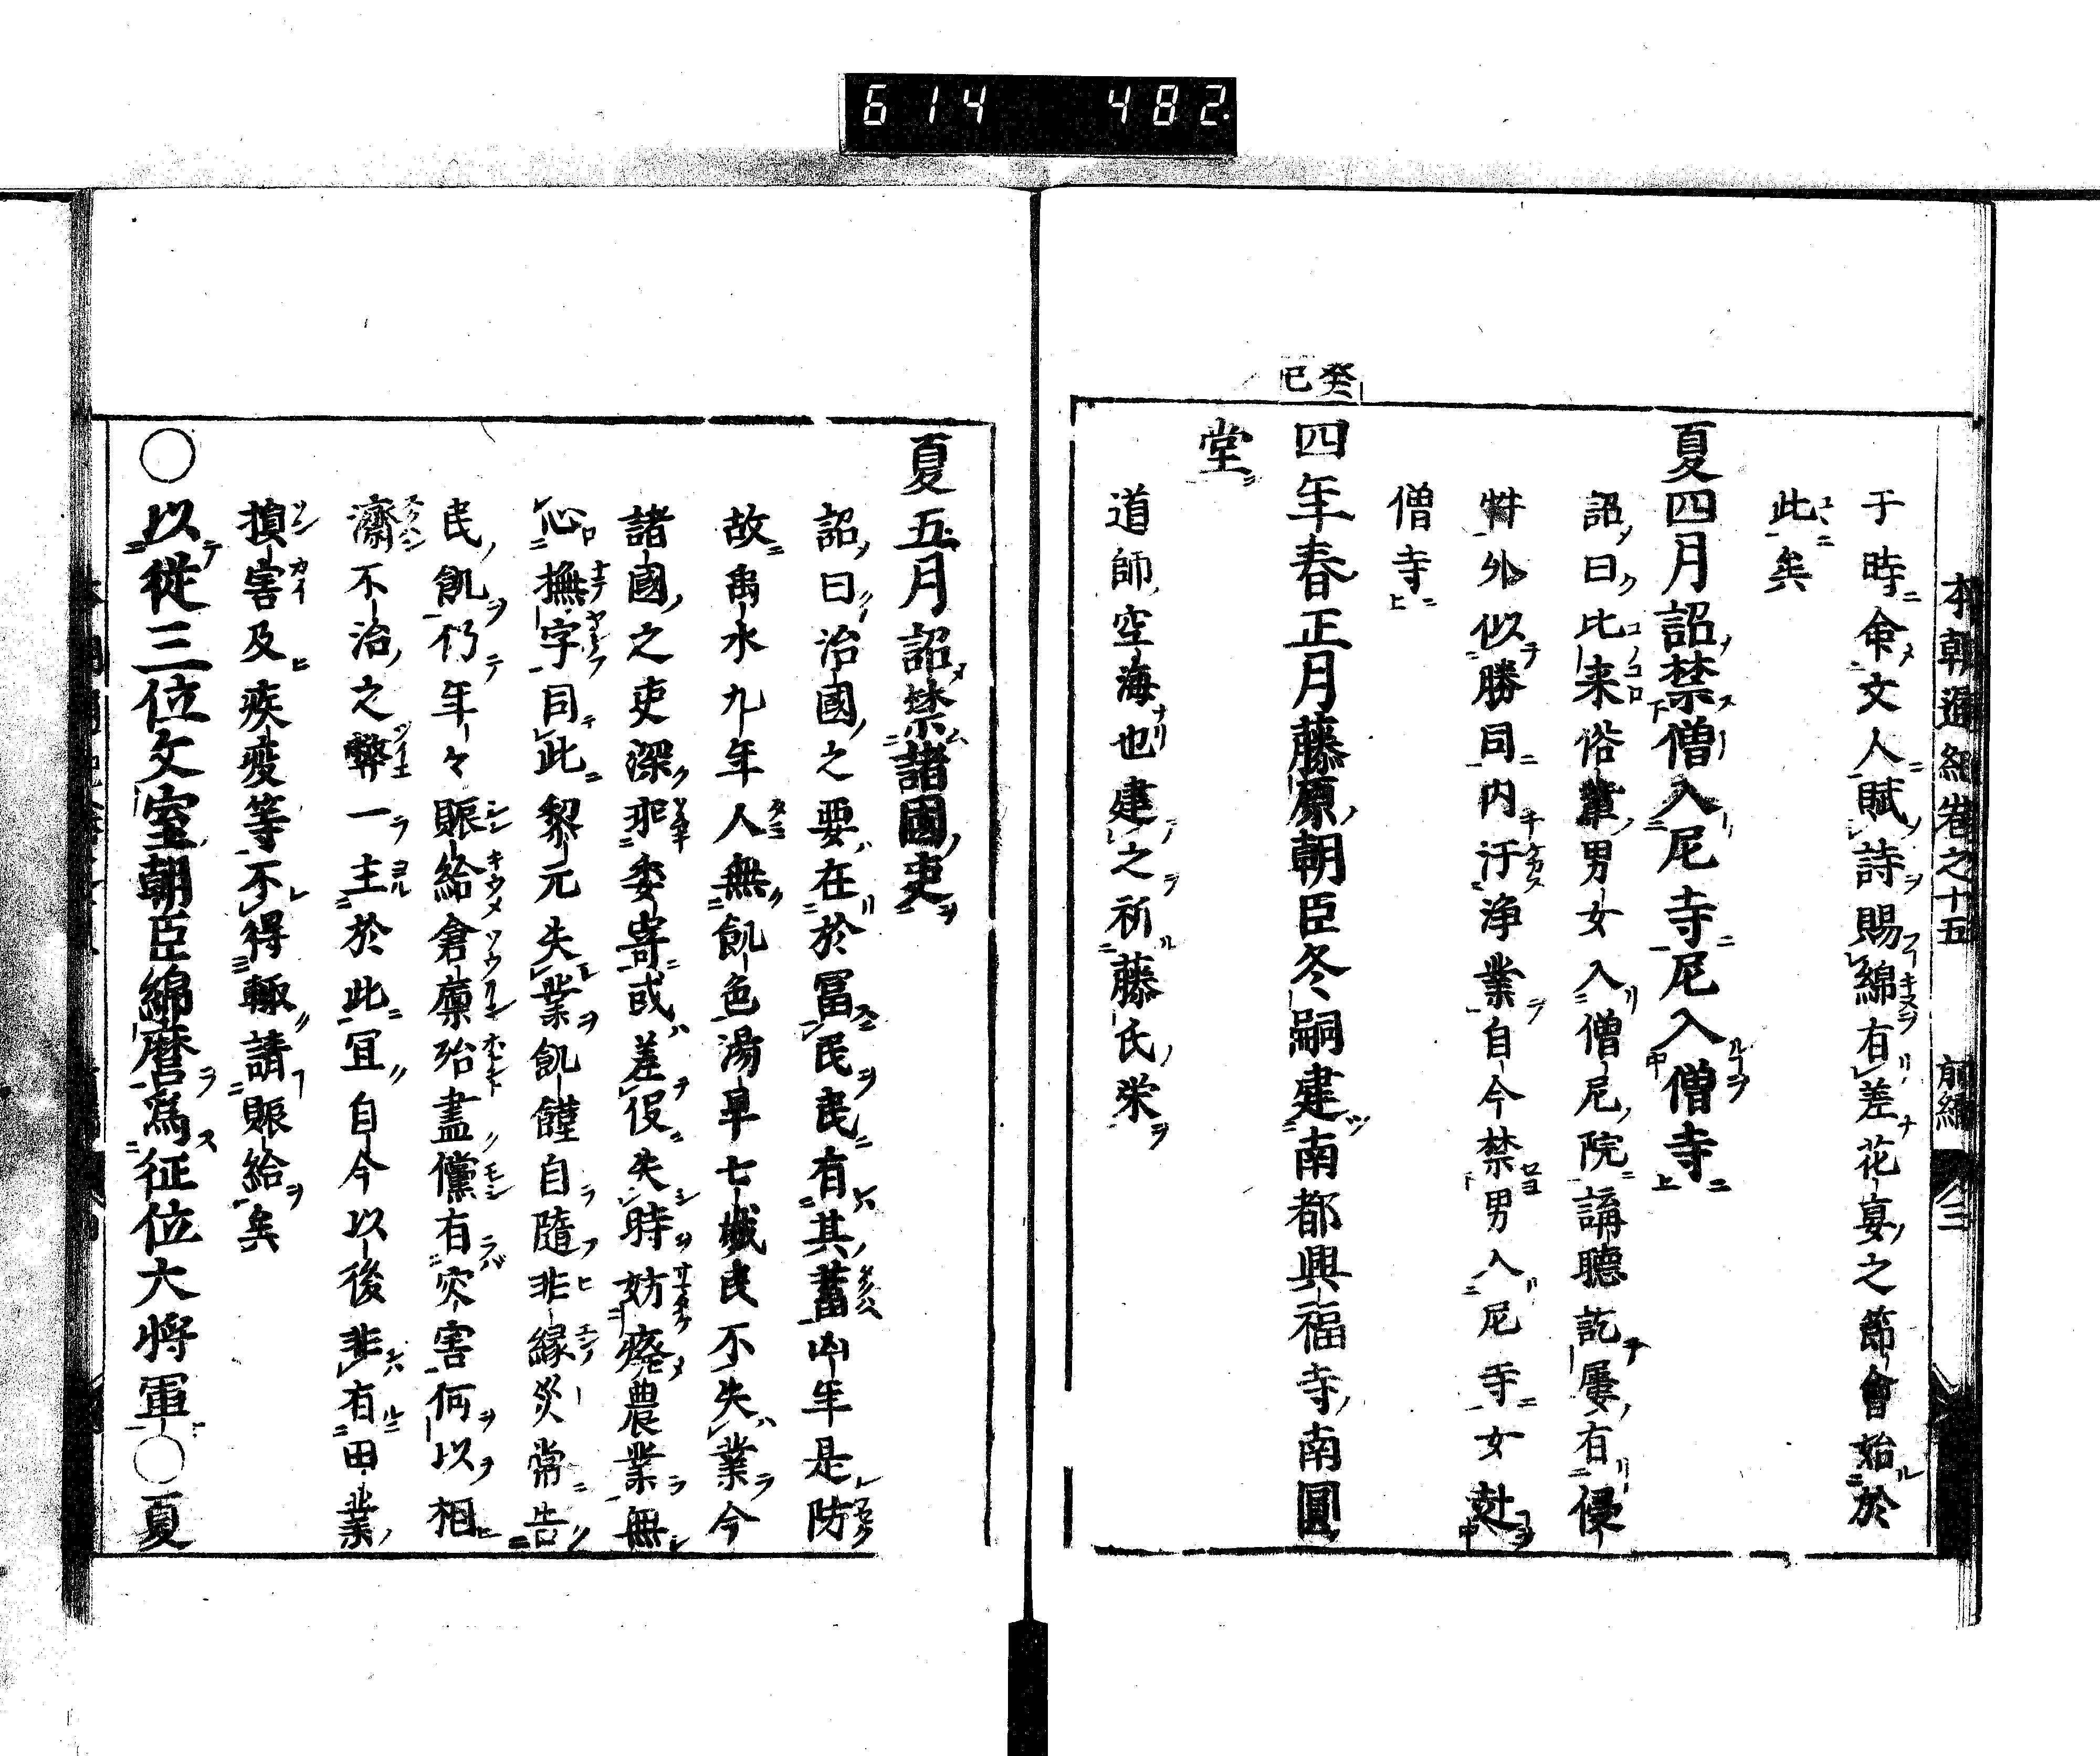 614 482
本朝通紀卷之十五 前編 三
于時命文人賦詩賜綿有差花宴之節會始於
此矣
夏四月詔禁僧入尼寺尼入僧寺
詔曰比来俗輩男女入僧尼院講聽訖屢有侵
外似勝同内汙淨業自今禁男入尼寺女赴
僧寺
癸巳
四年春正月藤原朝臣冬嗣建南都興福寺南圓
堂
道師空海也建之祈藤氏栄
夏五月詔禁諸國吏
詔曰治國之要在於冨民民有其蓄凶年是防
故禹水九年人無飢色湯旱七歳民不失業今
諸國之吏深乖委寄或差役失時妨廢農業無
心撫字同此黎元失業飢饉自隨非縁災常告
民飢仍年々賑給倉廩殆盡儻有灾害何以相
濟不治之弊一主於此冝自今以後非有田業
損害及疾疫等不得輙請賑給矣
○以從三位文室朝臣綿麿爲征位大将軍○夏